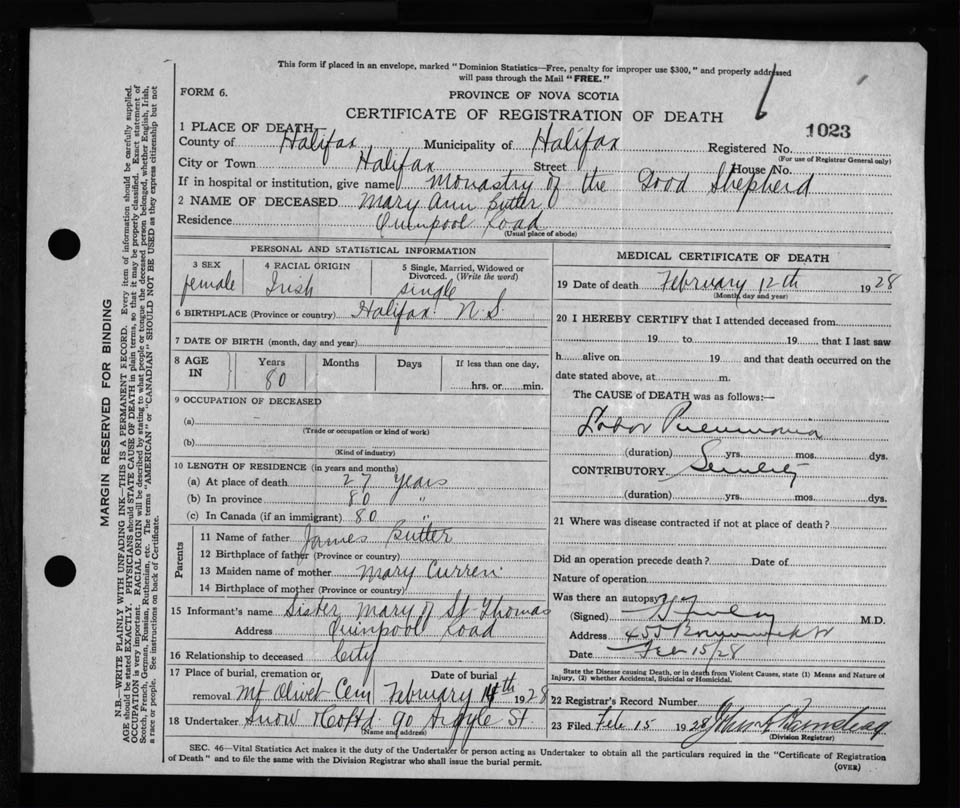 This form if placed in an envelope, marked "Dominion Statistics—Free, penalty for improper use $300," and properly addressed
will pass through the Mail "FREE."
FORM 6.
PROVINCE OF NOVA SCOTIA
CERTIFICATE OF REGISTRATION OF DEATH
1023
1 PLACE OF DEATH
County of Halifax Municipality of Halifax Registered No.
(For use of Registrar General only)
City or Town Halifax Street House No.
If in hospital or institution, give name Monastry of the Good Shepherd
2 NAME OF DECEASED Mary Ann Butler
Residence Quinpool Road
(Usual place of abode)
PERSONAL AND STATISTICAL INFORMATION
3 SEX 4 RACIAL ORIGIN 5 Single, Married, Widowed or
Divorced. (Write the word)
female Irish single
6 BIRTHPLACE (Province or country) Halifax N.S.
7 DATE OF BIRTH (month, day and year)
8 AGE IN Years Months Days If less than one day,
80 hrs. or min.
9 OCCUPATION OF DECEASED
(a)
(Trade or occupation or kind of work)
(b)
(Kind of industry)
10 LENGTH OF RESIDENCE (in years and months)
(a) At place of death 27 years
(b) In province 80 "
(c) In Canada (if an immigrant) 80 "
Parents
11 Name of father James Butler
12 Birthplace of father (Province or country)
13 Maiden name of mother Mary Curren
14 Birthplace of mother (Province or country)
15 Informant's name Sister Mary of St Thomas
Address Quinpool Road
16 Relationship to deceased City
17 Place of burial, cremation or Date of burial
removal Mt Olivet Cem February 14th 1928
18 Undertaker Snow & Co Ltd 90 Argyle St.
(Name and address)
MEDICAL CERTIFICATE OF DEATH
19 Date of death February 12th 1928
(Month, day and year)
20 I HEREBY CERTIFY that I attended deceased from
19 to 19 that I last saw
h alive on 19 and that death occurred on the
date stated above, at m.
The CAUSE of DEATH was as follows:—
Lobar Pneumonia
(duration) yrs. mos. dys.
CONTRIBUTORY Senility
(duration) yrs. mos. dys.
21 Where was disease contracted if not at place of death?
Did an operation precede death? Date of
Nature of operation
Was there an autopsy
(Signed) M.D.
Address 455
Date Feb 15/28
State the Disease causing Death, or in death from Violent Causes, state (1) Means and Nature of
Injury, (2) whether Accidental, Suicidal or Homicidal.
22 Registrar's Record Number
23 Filed Feb 15 1928 John
(Division Registrar)
SEC. 46—Vital Statistics Act makes it the duty of the Undertaker or person acting as Undertaker to obtain all the particulars required in the "Certificate of Registration
of Death" and to file the same with the Division Registrar who shall issue the burial permit.
(OVER)
MARGIN RESERVED FOR BINDING
N.B.—WRITE PLAINLY WITH UNFADING INK—THIS IS A PERMANENT RECORD. Every item of information should be carefully supplied.
AGE should be stated EXACTLY. PHYSICIANS should STATE CAUSE OF DEATH in plain terms, so that it may be properly classified. Exact statement of
OCCUPATION is very important. RACIAL ORIGIN will be described by stating to what people or tongue the deceased person belonged, whether English, Irish,
Scotch, French, German, Russian, Ruthenian, etc. The terms "AMERICAN" or "CANADIAN" SHOULD NOT BE USED as they express citizenship but not
a race or people. See instructions on back of Certificate.